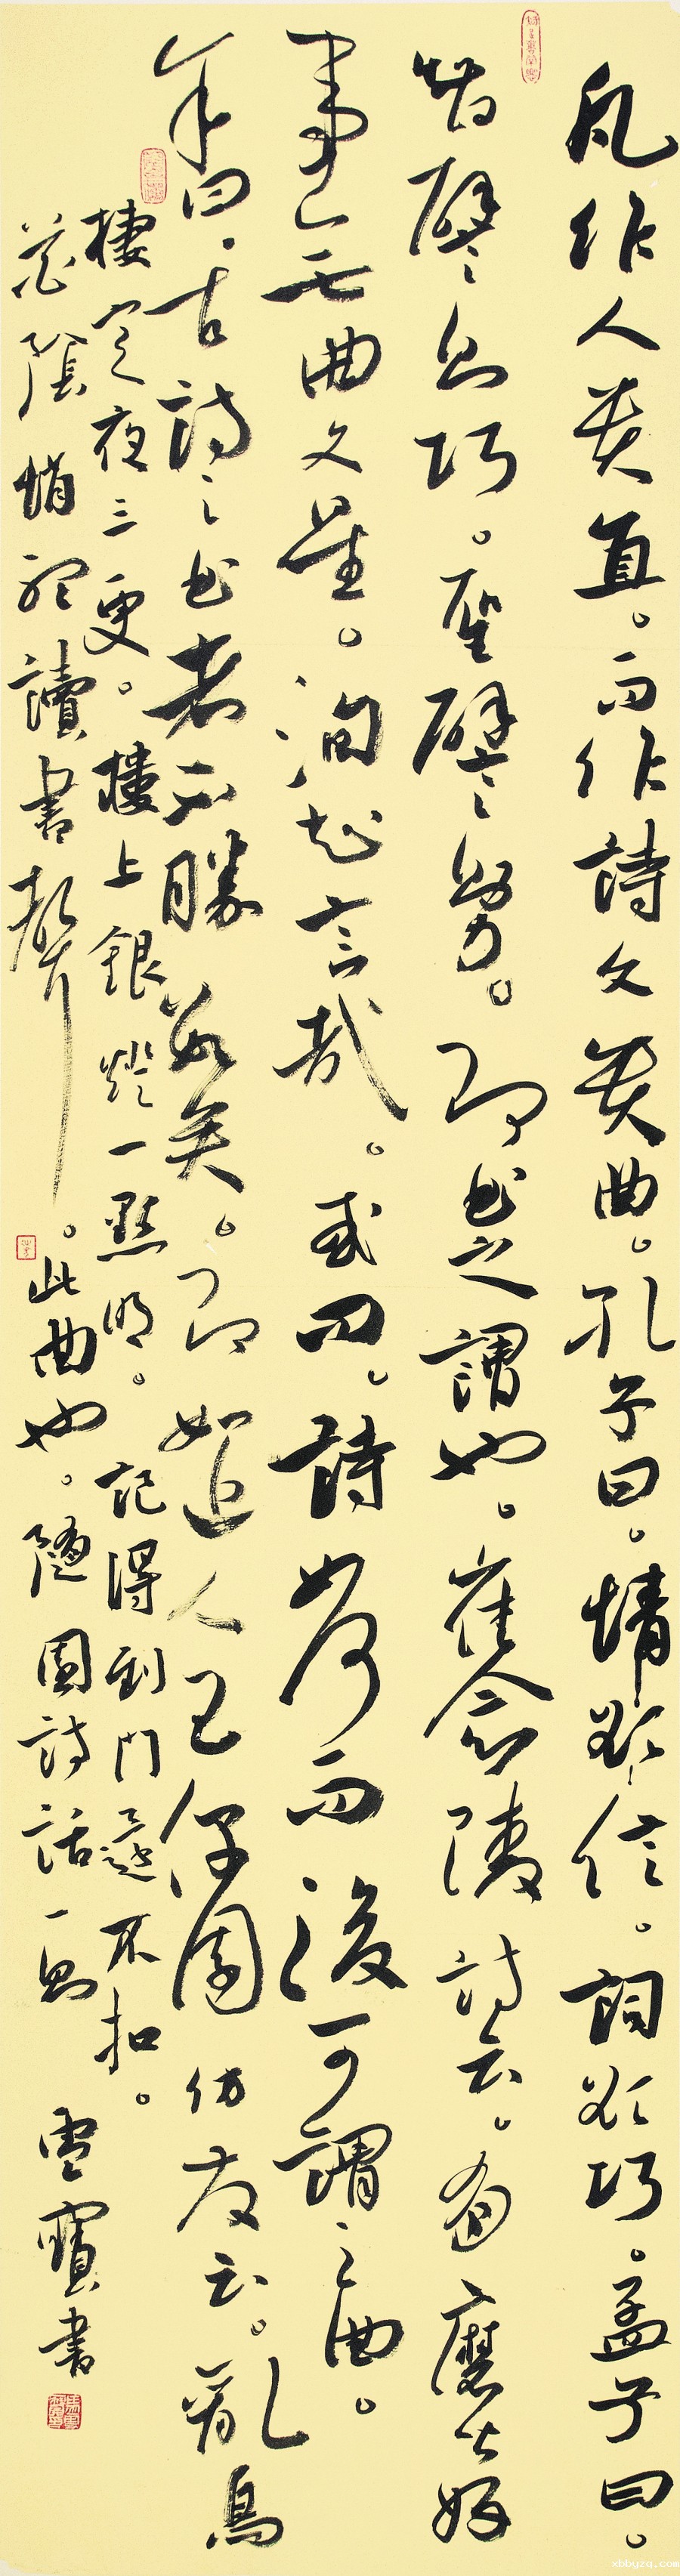 凡作人貴直。而作詩文貴曲。孔子曰。情欲信。詞欲巧。孟子曰。
智譬則巧。聖譬則力。即曲之謂也。崔念陵詩云。有磨皆好
事無曲文星。洵知言哉。或曰。詩如何而後可謂之曲。
余曰。古詩之曲者不勝數矣。即如近人王仔園仿友云。亂鳥
棲定夜三更。樓上銀燈一點明。記得到門還不扣。
花陰悄聽讀書聲。此曲也。隨園詩話一則 雪寶書
xbbyzq.com